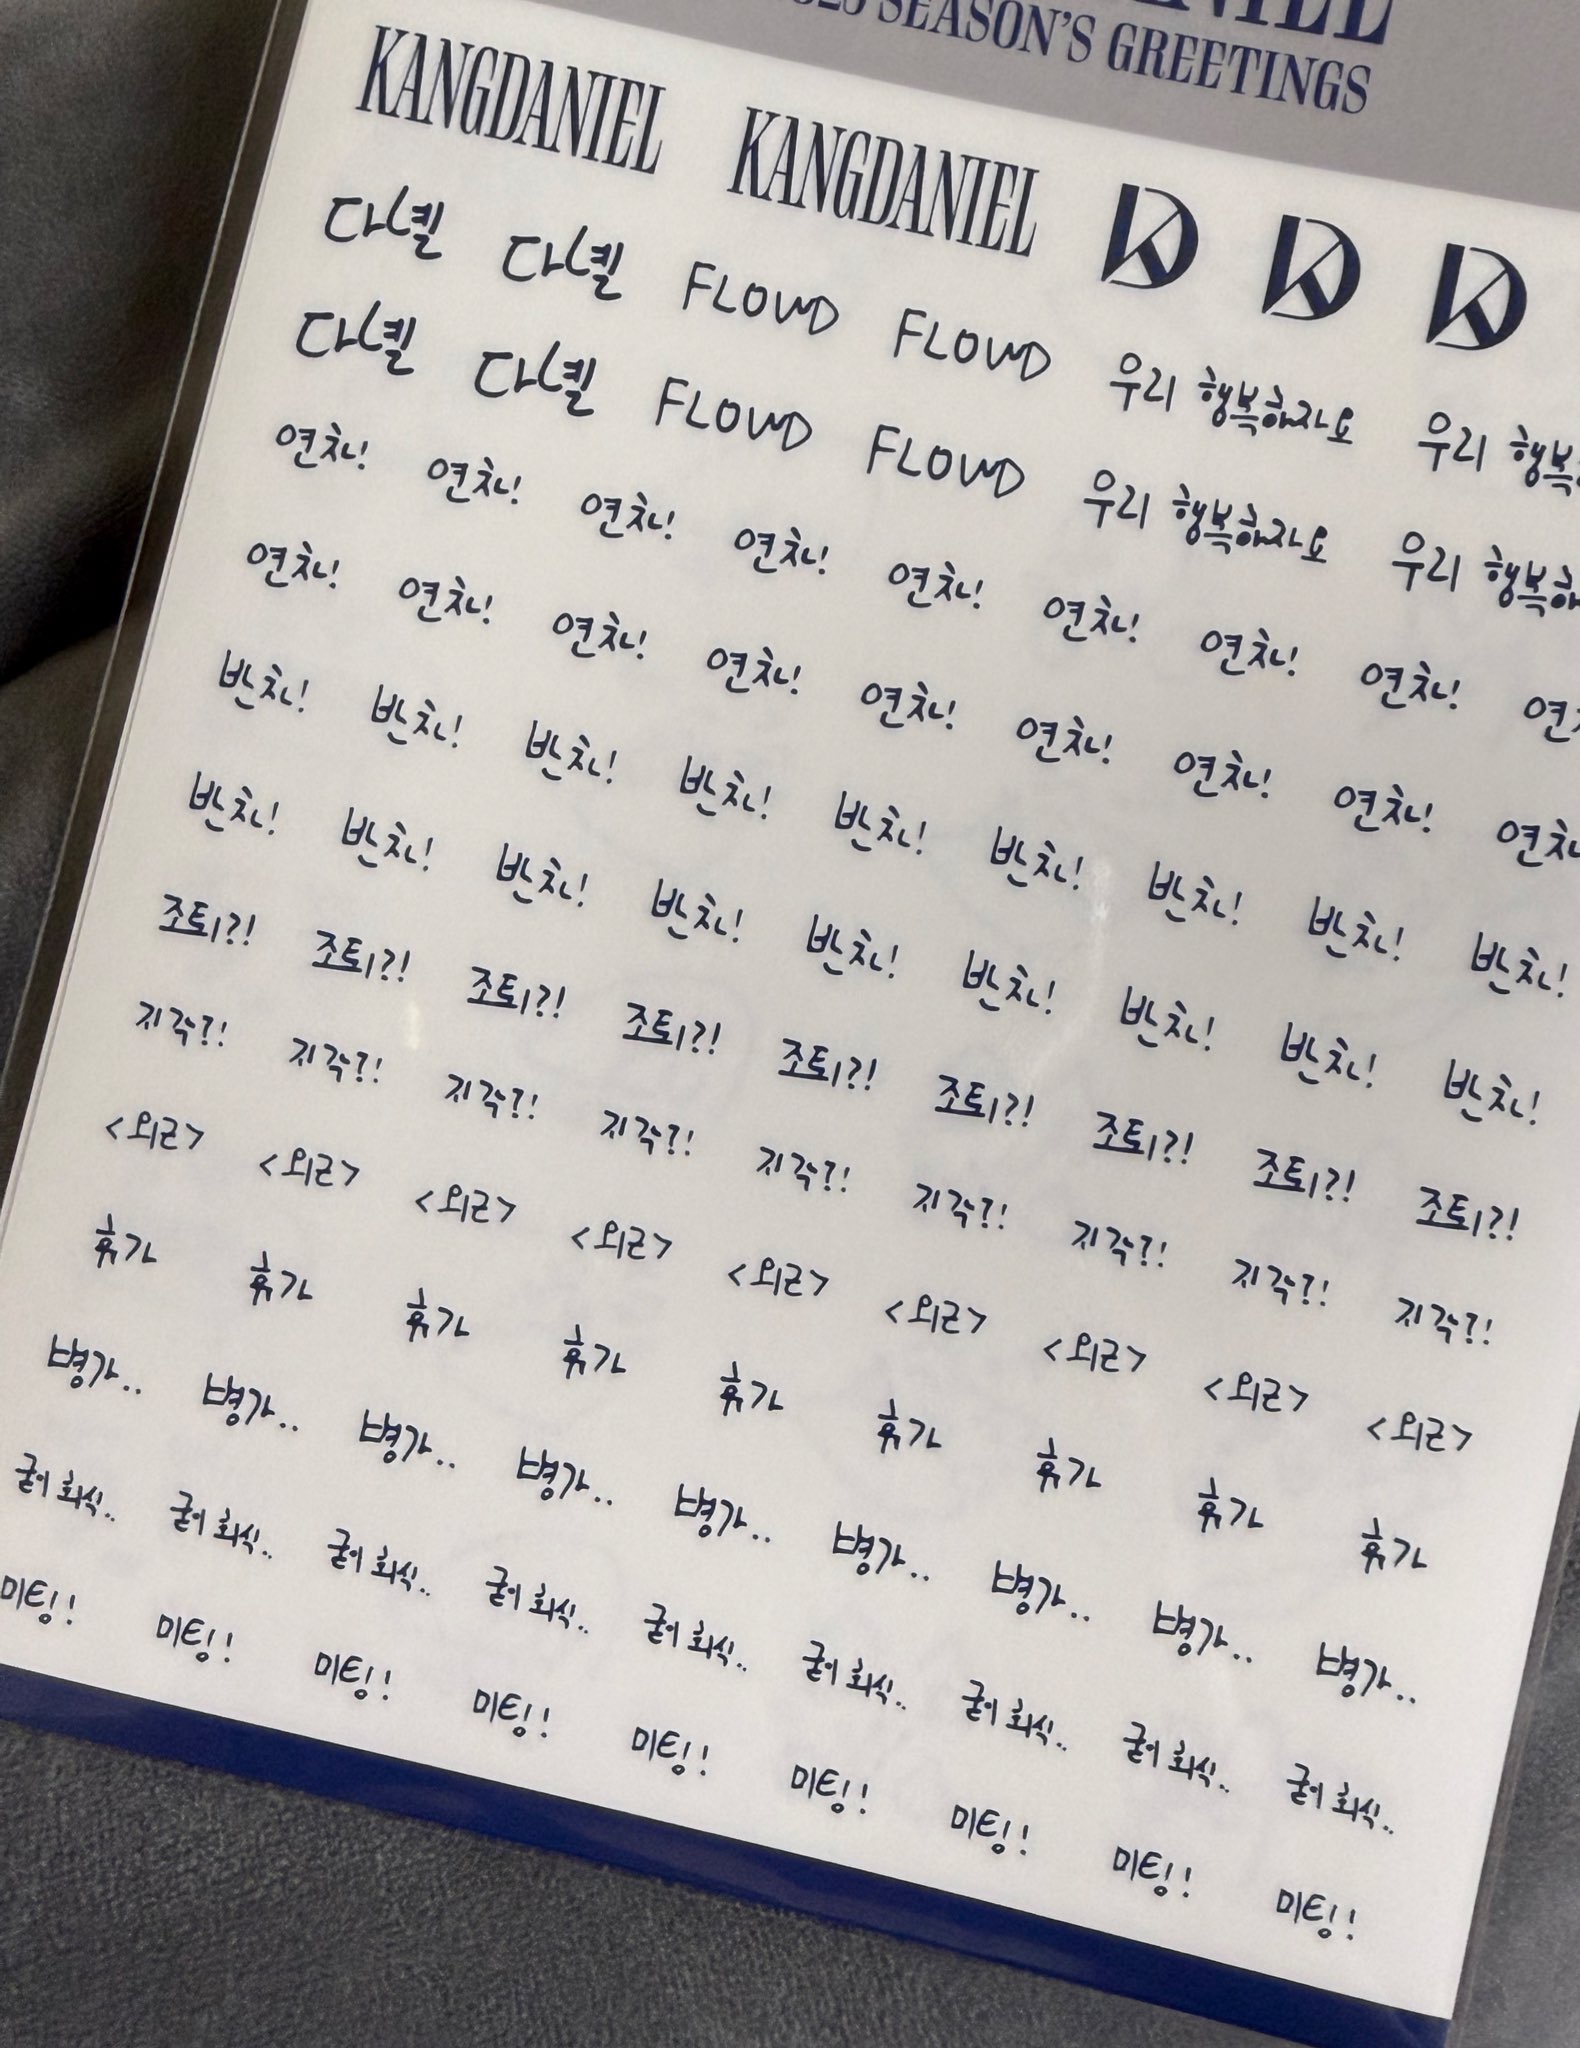 SEASON'S GREETINGS
KANGDANIEL KANGDANIEL
다녤 다녤 FLOWD FLOWD 우리 행복해자요 우리 행복
다녤 다녤 FLOWD FLOWD 우리 행복해자요 우리 행복해
연차! 연차! 연차! 연차! 연차! 연차! 연차! 연차! 연차
연차! 연차! 연차! 연차! 연차! 연차! 연차! 연차! 연차
반차! 반차! 반차! 반차! 반차! 반차! 반차! 반차! 반차!
반차! 반차! 반차! 반차! 반차! 반차! 반차! 반차! 반차!
조퇴?! 조퇴?! 조퇴?! 조퇴?! 조퇴?! 조퇴?! 조퇴?! 조퇴?! 조퇴?!
지각?! 지각?! 지각?! 지각?! 지각?! 지각?! 지각?! 지각?! 지각?!
<외근> <외근> <외근> <외근> <외근> <외근> <외근> <외근> <외근>
휴가 휴가 휴가 휴가 휴가 휴가 휴가 휴가 휴가
병가.. 병가.. 병가.. 병가.. 병가.. 병가.. 병가.. 병가.. 병가..
굳이 회식.. 굳이 회식.. 굳이 회식.. 굳이 회식.. 굳이 회식.. 굳이 회식.. 굳이 회식.. 굳이 회식.. 굳이 회식..
미팅! 미팅! 미팅! 미팅! 미팅! 미팅! 미팅! 미팅! 미팅!